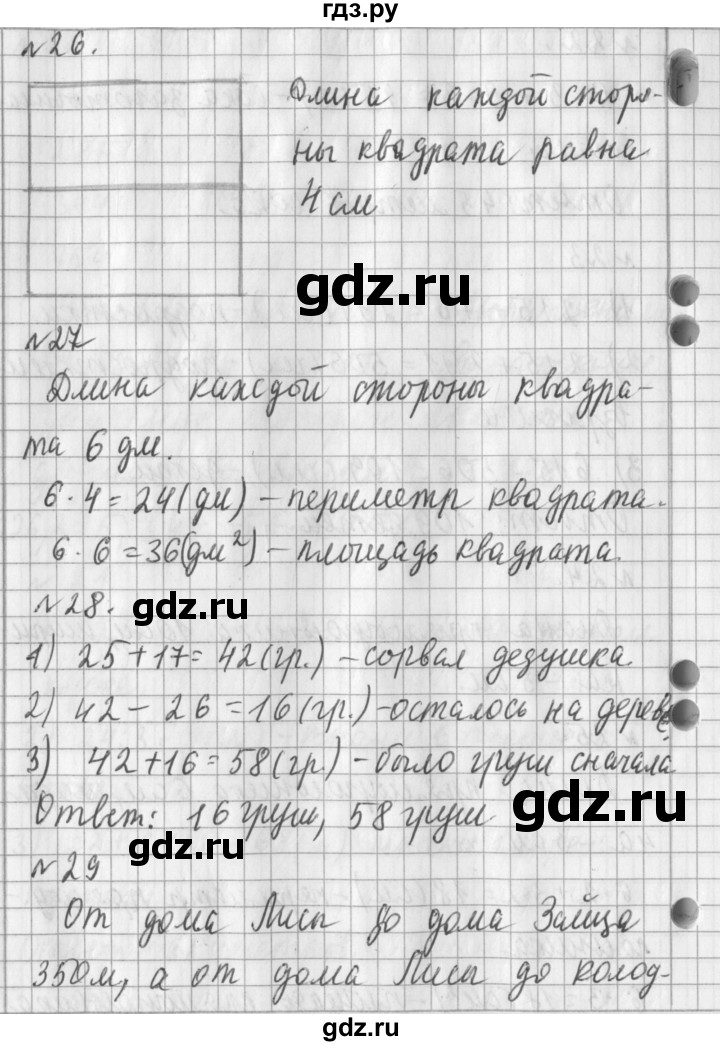 гдз.ру
№26.
Длина каждой сторо-
ны квадрата равна
4 см
gdz.ru
№27
Длина каждой стороны квадра-
та 6 дм.
6·4=24(дм) – периметр квадрата.
6·6=36(дм²) – площадь квадрата.
№28. gdz.ru
1) 25+17=42(гр.) – сорвал дедушка.
2) 42–26=16(гр.) – осталось на дереве
3) 42+16=58(гр) – было груш сначала
Ответ: 16 груш, 58 груш
gdz.ru
gdz.ru
№29
От дома Лисы до дома Зайца
350м, а от дома Лисы до колод-
gdz.ru